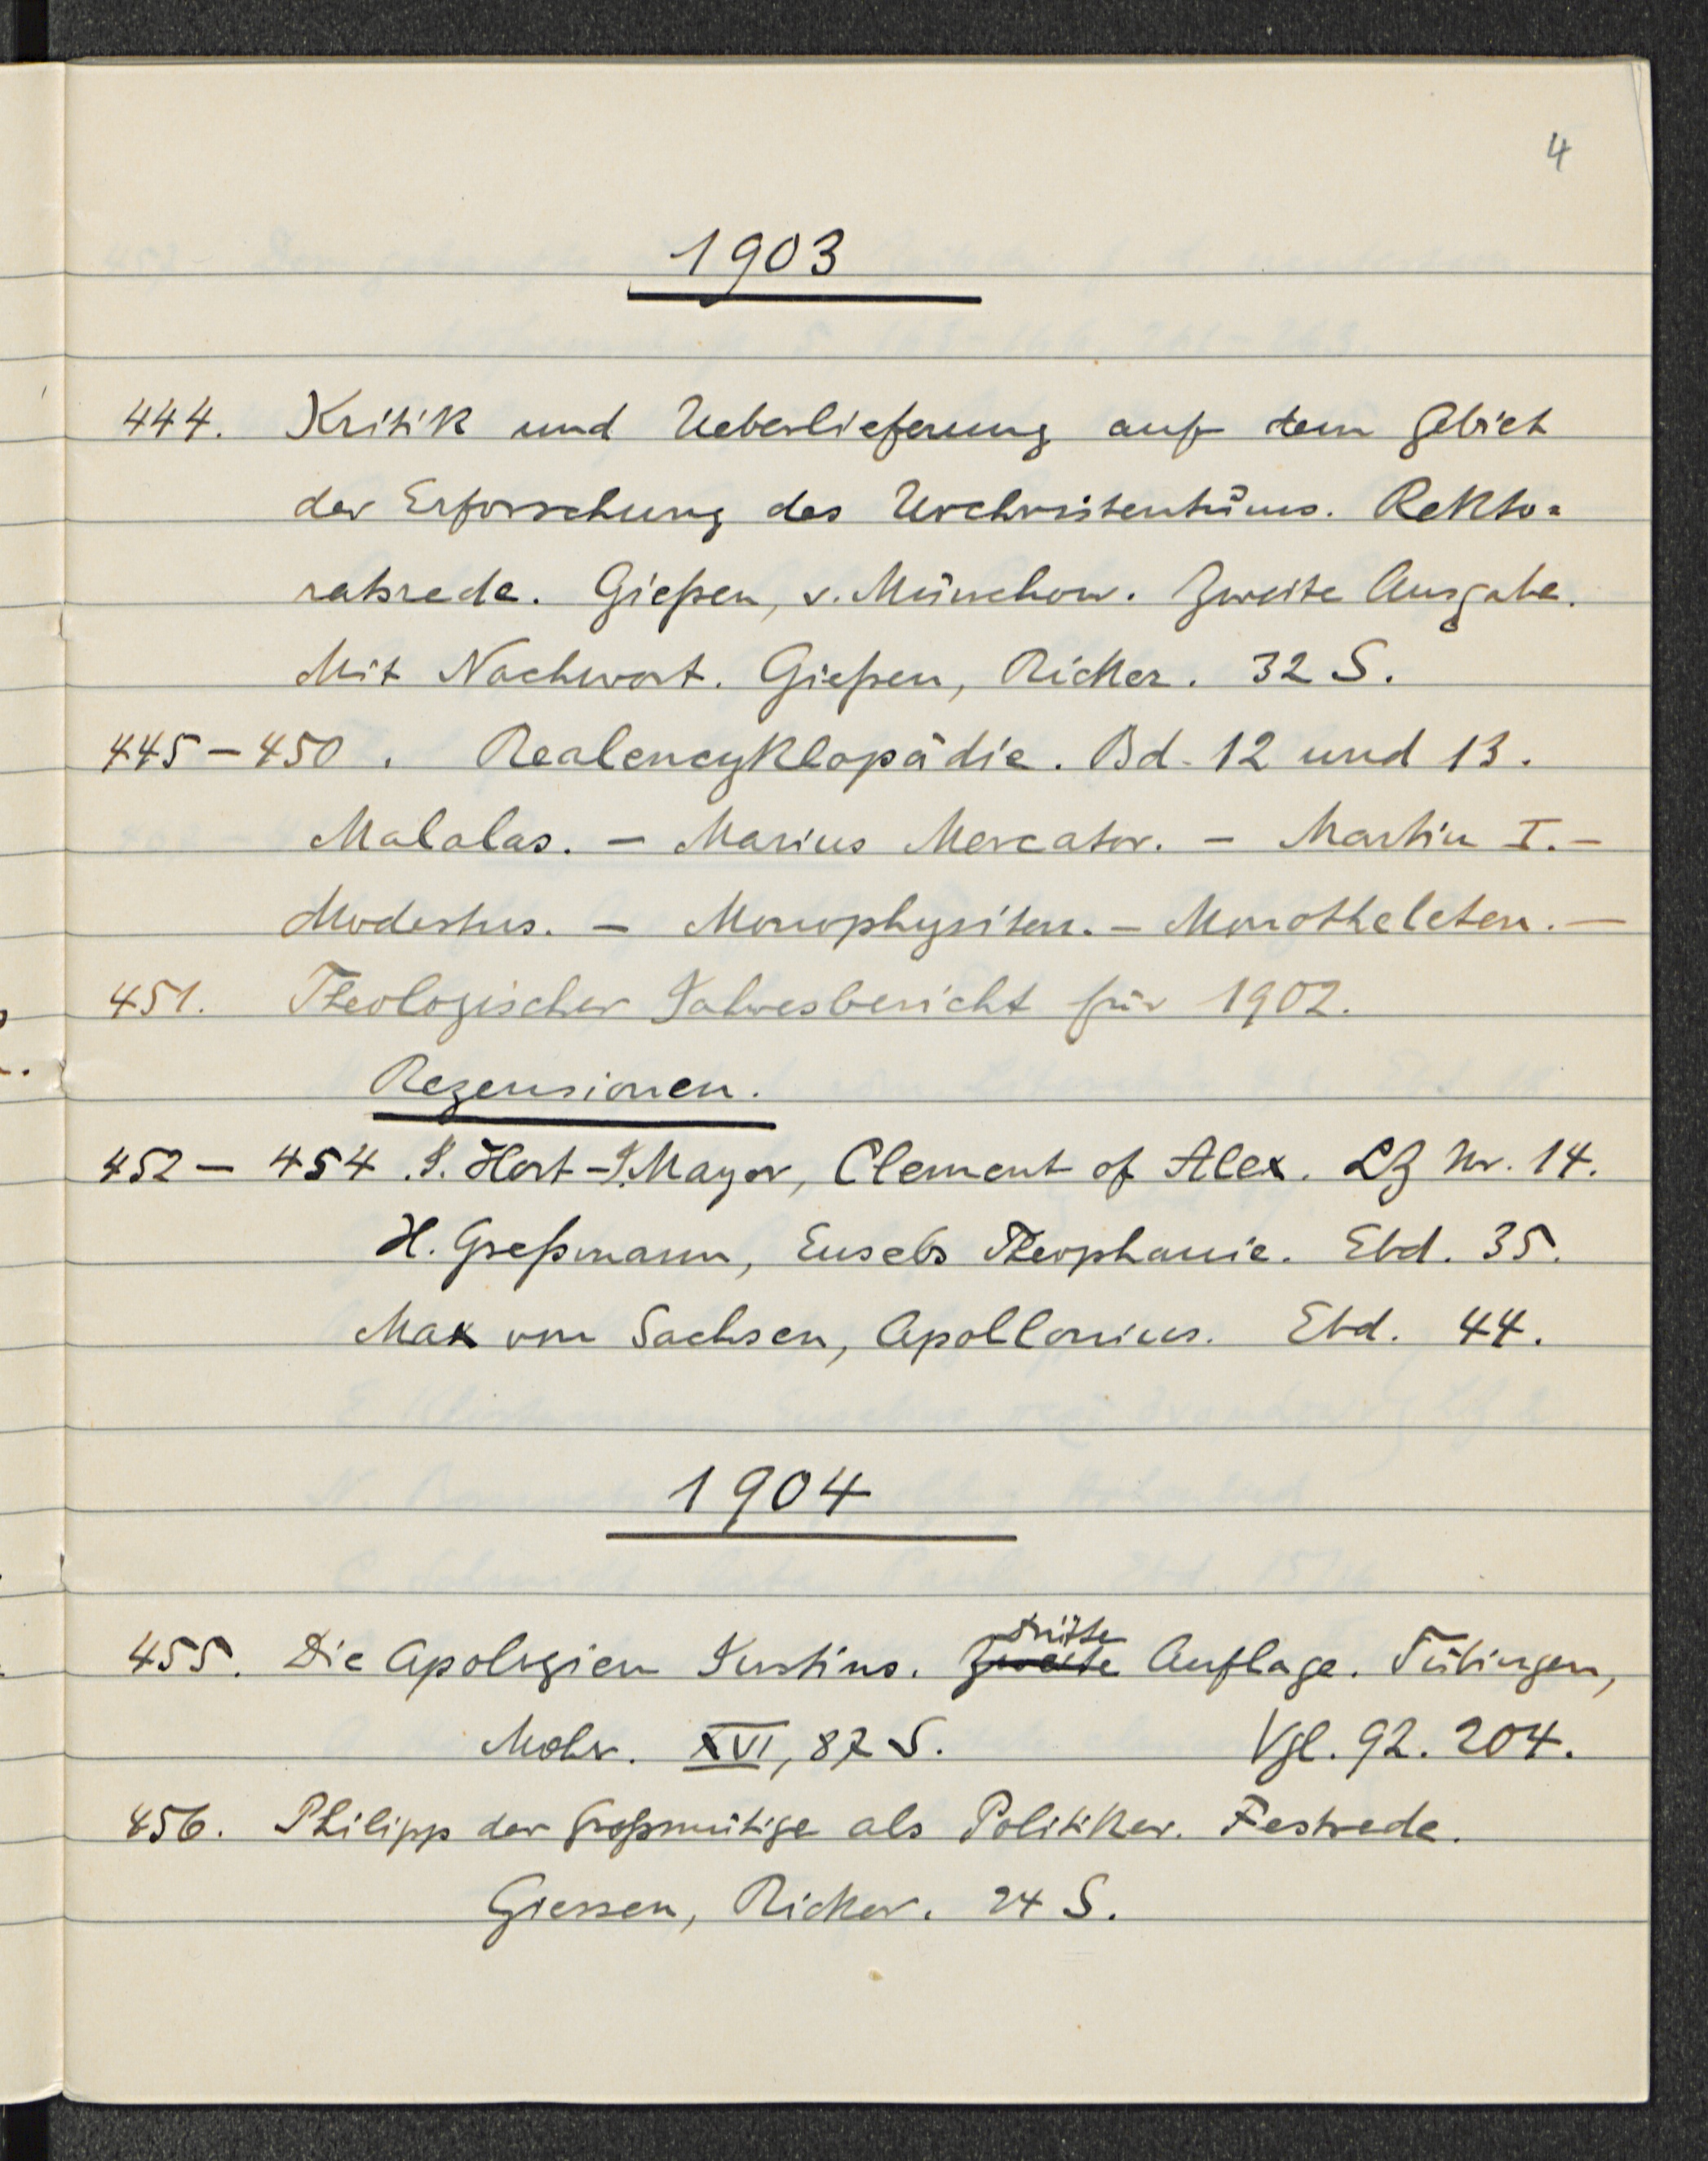 4
1903
444. Kritik und Ueberlieferung auf dem Gebiet
der Erforschung des Urchristentums. Rekto=
ratsrede. Gießen, v. Münchow. Zweite Ausgabe.
Mit Nachwort. Gießen, Ricker. 32 S.
445-450. Realencyklopädie. Bd. 12 und 13.
Malalas. - Marius Mercator. - Martin I. -
Modestus. - Monophysiten. - Monotheleten. -
451. Theologischer Jahresbericht für 1902.
Rezensionen.
452 - 454. J. Hort - J. Mayor, Clement of Alex. LZ Nr. 14.
H. Greßmann, Eusebs Theophanie. Ebd. 35.
Max von Sachsen, Apollonius. Ebd. 44.
1904
dritte
455. Die Apologien Justins. Zweite Auflage. Tübingen,
Mohr. XVI, 87 S. Vgl. 92. 204.
456. Philipp der Großmütige als Politiker. Festrede.
Giessen, Ricker. 24 S.